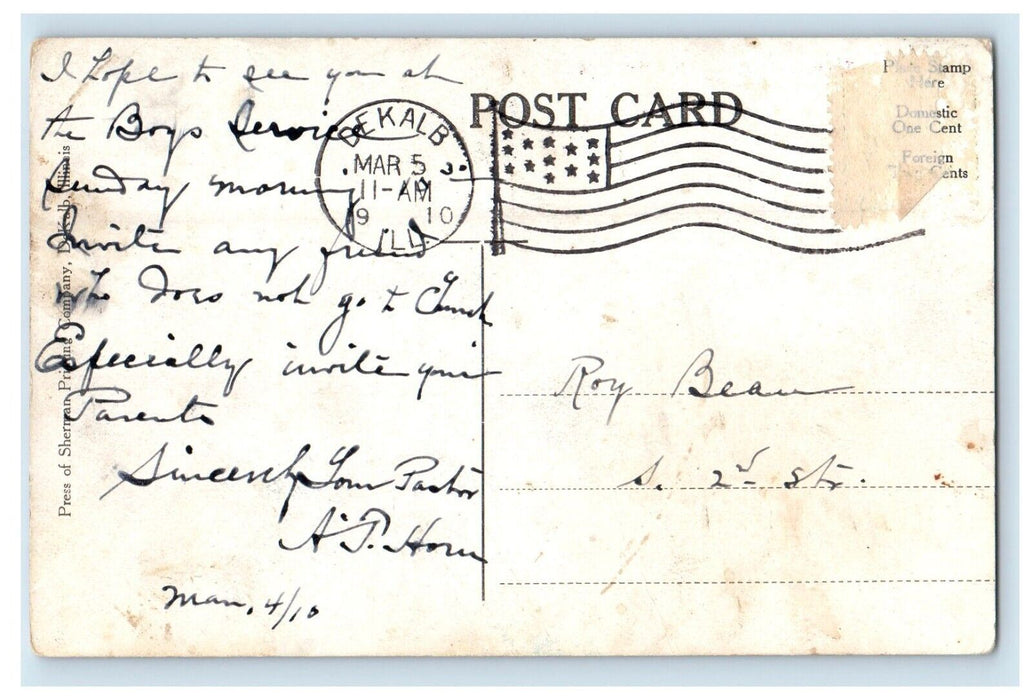 I hope to see you at
the Boys Service
Sunday morning
Invite any friend
who does not go to Church
Especially invite your
Parents
Sincerely Your Pastor
A. T. Horn
Mar. 4/10
Press of Sherman Printing Company, DeKalb, Illinois
POST CARD
DEKALB
MAR 5
11-AM
19 10
ILL.
Place Stamp
Here
Domestic
One Cent
Foreign
Two Cents
Roy Bean
S. 2nd Str.